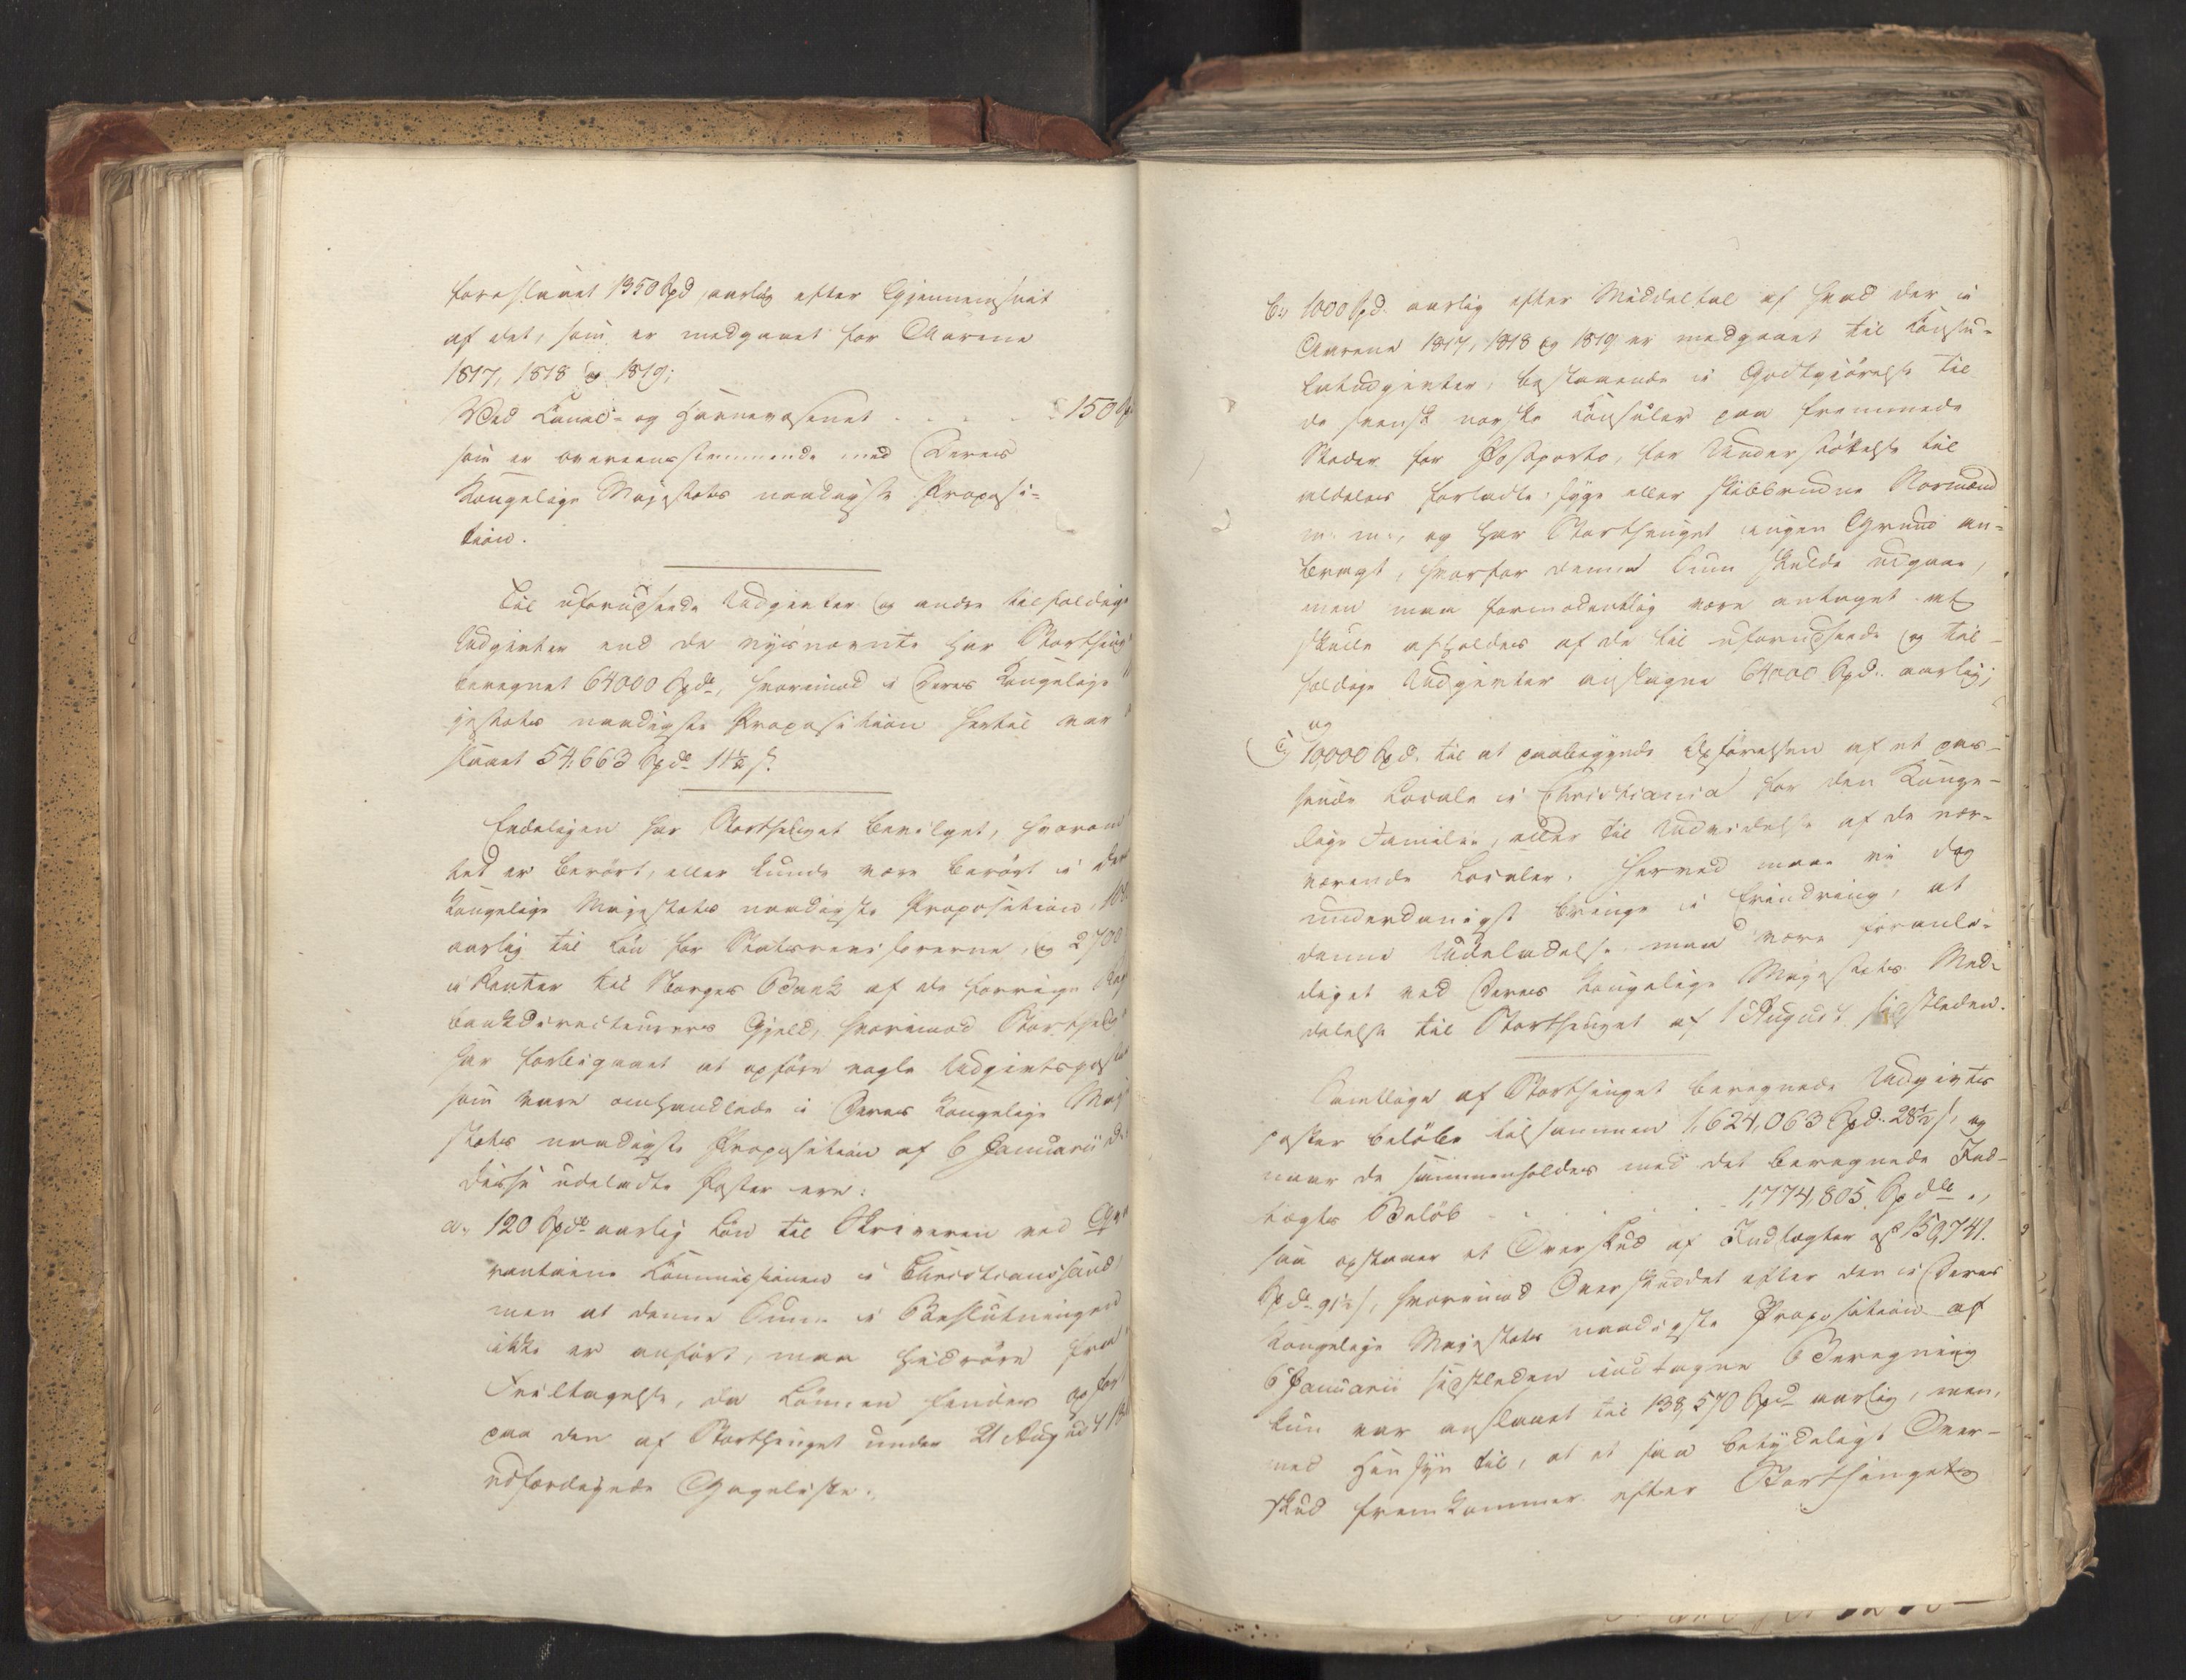 foreslaaet 1350 Spd, aarlig efter Gjennemsnit
af det, som er medgaaet for Aarene
1817, 1818 og 1819;
Ved Canal- og Havnevæsenet . . . . 150 Sp
som er overeensstemmende med Deres
Kongelige Majestæts naadigste Proposi=
tion.
Til uforudseede Udgivter og andre tilfældige
Udgivter end de nysnævnte har Storthing
beregnet 64000 Spd, hvorimod i Deres Kongelige
jestæts naadigste Proposition hertil var
slaaet 54,663 Spd 11½ s.
Endeligen har Storthinget bevilget, hvorom
tet er berørt, eller kunde være berørt i Der
Kongelige Majestæts naadigste Proposition, 100
aarlig til Løn for Statsrevisorerne, og 2700
i Renter til Norges Bank af de forrige Rig
bankdirecteurers Gjeld, hvorimod Storthing
har forbigaaet at opføre nogle Udgivtsposter
som vare omhandlede i Deres Kongelige Maj
stæts naadigste Proposition af 6 Januarii d.
Disse udeladte Poster ere:
a., 120 Spd aarlig Løn til Skriveren ved Qva
rantaine Commissionen i Christianssand,
men at denne Sum i Beslutningen
ikke er anført, maa hidrøre fra
Feiltagelse, da Lønnen findes opført
paa den af Storthinget under 21 August 18
udfærdigede Gageliste.
b., 1000 Spd. aarlig efter Middeltal af hvad der i
Aarene 1817, 1818 og 1819 er medgaaet til Consu=
latudgivter, bestaaende i Godtgiørelse til
de svensk norske Consuler paa fremmede
Steder for Postporto, for Understøttelse til
aldeles forladte, syge eller skibbrudne Normænd
m. m., og har Storthinget ingen Grund an=
bragt, hvorfor denne Sum skulde udgaae,
men maa formodentlig være antaget at
skulle afholdes af de til uforudseede og til=
fældige Udgivter anslagne 64000 Spd. aarlig;
og
c., 10,000 Spd. til at paabegynde Opførelsen af et pas=
sende Locale i Christiania for den Konge=
lige Familie, eller til Udvidelse af de nær=
værende Localer. Herved maae vi dog
underdanigst bringe i Erindring, at
denne Udeladelse maa være foranle=
diget ved Deres Kongelige Majestæts Med=
delelse til Storthinget af 1 August sidstleden.
Samtlige af Storthinget beregnede Udgivts
poster beløbe tilsammen 1,624,063 Spd. 28½ s, og
naar de sammenholdes med det beregnede Ind=
tægts Beløb . . . . . . 1,774,805 Spdlr.,
saa opstaaer et Overskud af Indtægter af 150,741.
Spd. 91½ s, hvorimod Overskuddet efter den i Deres
Kongelige Majestæts naadigste Proposition af
6 Januarii sidstleden indtagne Beregning
kun var anslaaet til 138,570 Spd aarlig, men,
med Hensyn til, at et saa betydeligt Over=
skud fremkommer efter Storthingets